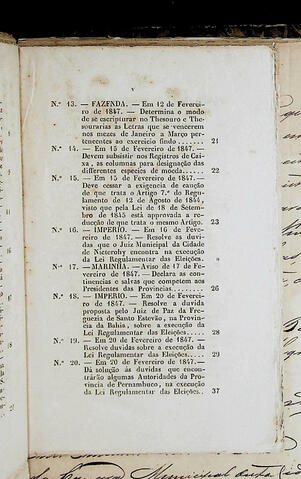 V
N.º 13. — FAZENDA. — Em 12 de Feverei-
ro de 1847. — Determina o modo
de se escripturar no Thesouro e The-
sourarias as Letras que se vencerem
nos mezes de Janeiro a Março per-
tencentes ao exercicio findo...... 21
N.º 14. — Em 15 de Fevereiro de 1847. —
Devem subsistir nos Registros de Cai-
xa, as columnas para designação das
differentes especies de moeda...... 22
N.º 15. — Em 15 de Fevereiro de 1847. —
Deve cessar a exigencia de caução
de que trata o Artigo 7.º do Regu-
lamento de 12 de Agosto de 1844,
visto que pela Lei de 18 de Setem-
bro de 1845 está approvada a re-
ducção de que trata o mesmo Artigo. 23
N.º 16. — IMPERIO. — Em 16 de Feve-
reiro de 1847. — Resolve as duvi-
das que o Juiz Municipal da Cidade
de Nictheroy encontra na execução
da Lei Regulamentar das Eleições.. »
N.º 17. — MARINHA. — Aviso de 17 de
Fevereiro de 1847. — Declara as con-
tinencias e salvas que competem aos
Presidentes das Provincias........ 26
N.º 18. — IMPERIO. — Em 20 de Feverei-
ro de 1847. — Resolve a duvida
proposta pelo Juiz de Paz da Fre-
guezia de Santo Estevão, na Provin-
cia da Bahia, sobre a execução da
Lei Regulamentar das Eleições..... 28
N.º 19. — Em 20 de Fevereiro de 1847.—
Resolve duvidas sobre a execução da
Lei Regulamentar das Eleições..... 29
N.º 20. — Em 20 de Fevereiro de 1847.—
Dá solução ás duvidas que encon-
trárão algumas Autoridades da Pro-
vincia de Pernambuco, na execução
da Lei Regulamentar das Eleições.. 37